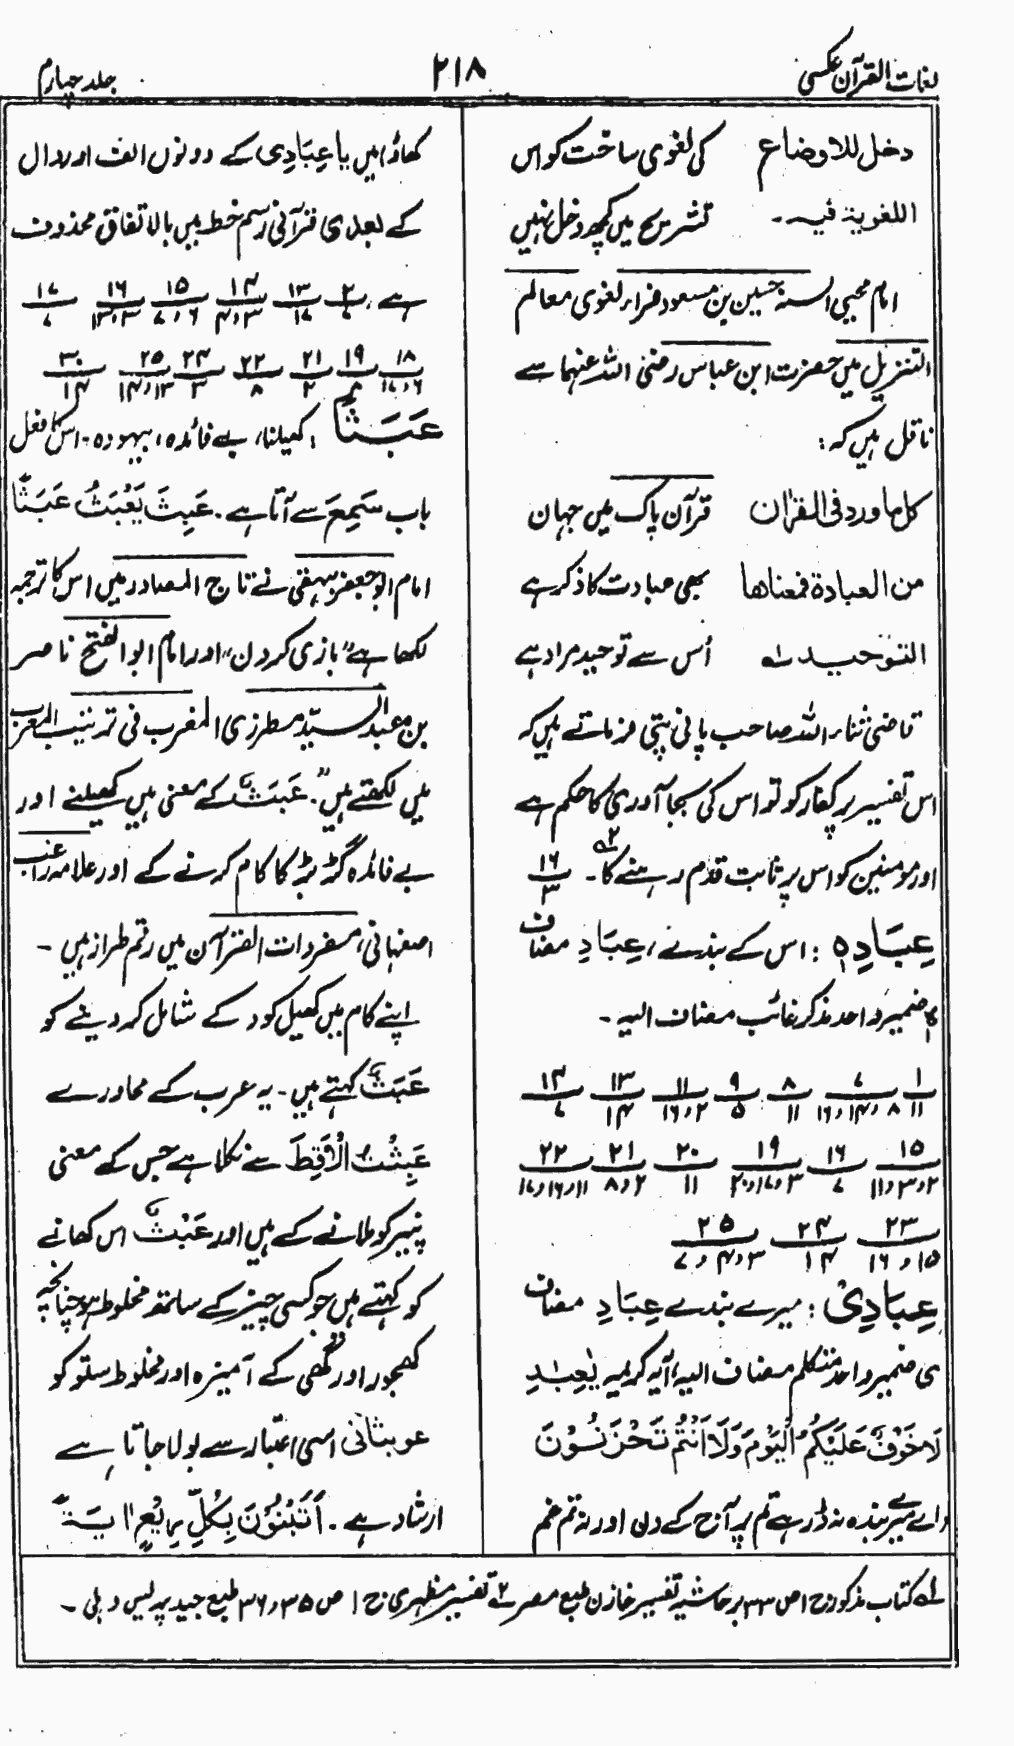 لغات القرآن عکسی
۲۱۸
جلد چہارم
دخل للاوضاع کی لغوی ساخت کو اس
اللغویة فیہ۔ تشریح میں کچھ دخل نہیں
امام محیی السنہ حسین بن مسعود فراء لغوی معالم
التنزیل میں حضرت ابن عباس رضی اللہ عنہما سے
ناقل ہیں کہ :
کل ما ورد فی القرآن قرآن پاک میں جہاں
من العبادة فمعناها بھی عبادت کا ذکر ہے
التوحید لہ اُس سے توحید مراد ہے
قاضی ثناء اللہ صاحب پانی پتی فرماتے ہیں کہ
اس تفسیر پر کفار کو تو اس کی بجا آوری کا حکم ہے
اور مومنین کو اس پر ثابت قدم رہنے کا۔ ۲ ۱۶ ۳
عِبَادِہٖ : اس کے بندے، عِبَادِ مضاف
ہٖ ضمیر واحد مذکر غائب مضاف الیہ۔
۱ ۷ ۸ ۹ ۱۱ ۱۳ ۱۴
۱۱ ۸ و ۱۴ و ۱۶ ۱۱ ۵ ۲ و ۱۶ ۱۴ ۷
۱۵ ۱۶ ۱۹ ۲۰ ۲۱ ۲۲
۲ و ۳ و ۱۱ ۷ ۳ و ۱۷ و ۲۰ ۱۱ ۲ و ۸ ۱۱ و ۱۶ و ۱۷
۲۳ ۲۴ ۲۵
۱۵ و ۱۶ ۱۴ ۳ و ۴ و ۷
عِبَادِیْ : میرے بندے عِبَادِ مضاف
ی ضمیر واحد متکلم مضاف الیہ، آیہ کریمہ یٰعِبَادِ
لَا خَوْفٌ عَلَیْکُمُ الْیَوْمَ وَلَا اَنْتُمْ تَحْزَنُوْنَ
(اے میرے بندہ نہ ڈر ہے تم پر آج کے دن اور نہ تم غم
کھاؤ) میں یا عِبَادِی کے دونوں الف اور دال
کے بعد ی قرآنی رسم خط میں بالاتفاق محذوف
ہے، ۲ ۱۳ ۱۴ ۱۵ ۱۶ ۱۷
۷ ۱۷ ۳ و ۴ ۶ و ۷ ۳ و ۱۳ ۷
۱۸ ۱۹ ۲۱ ۲۲ ۲۴ ۲۵ ۳۰
۶ و ۱۷ ۸ ۲ ۸ ۳ ۱۳ و ۱۴ ۱۴
عَبَثًا : کھیلنا، بے فائدہ، بیہودہ۔ اس کا فعل
باب سَمِعَ سے آتا ہے۔ عَبِثَ یَعْبَثُ عَبَثًا
امام ابو جعفر بیہقی نے تاج المصادر میں اس کا ترجمہ
لکھا ہے "بازی کردن" اور امام ابو الفتح ناصر
بن عبد السیّد مطرزی المغرب فی ترتیب المعرب
میں لکھتے ہیں"۔ عَبَثٌ کے معنی ہیں کھیلنے اور
بے فائدہ گڑبڑ کا کام کرنے کے اور علامہ راغب
اصفہانی، مفردات القرآن میں رقم طراز ہیں۔
اپنے کام میں کھیل کود کے شامل کر دینے کو
عَبَثٌ کہتے ہیں۔ یہ عرب کے محاورے
عَبِثْتُ الْاَقِطَ سے نکلا ہے جس کے معنی
پنیر کو ملانے کے ہیں اور عَبْثٌ اس کھانے
کو کہتے ہیں جو کسی چیز کے ساتھ مخلوط ہو چنانچہ
کھجور اور گھی کے آمیزہ اور مخلوط ستو کو
عوبثانی اسی اعتبار سے بولا جاتا ہے
ارشاد ہے۔ اَتَبْنُوْنَ بِکُلِّ رِیْعٍ اٰیَةً
لہ کتاب مذکور ج ا ص ۳۳ بر حاشیہ تفسیر خازن طبع مصر ۲ے تفسیر مظہری ج ا ص ۳۵ و ۳۶ طبع جید پریس دہلی۔